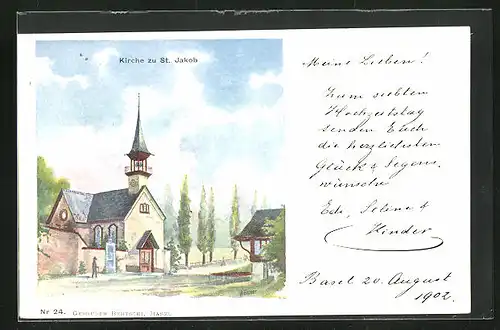 Kirche zu St. Jakob
Meine Lieben!
Zum siebten
Hochzeitstag
senden Euch
die herzlichsten
Glück & Segens
wünsche
Ed., Selina &
Kinder
Basel 20. August
1902.
Nr 24. Gebrüder Bentschi, Basel